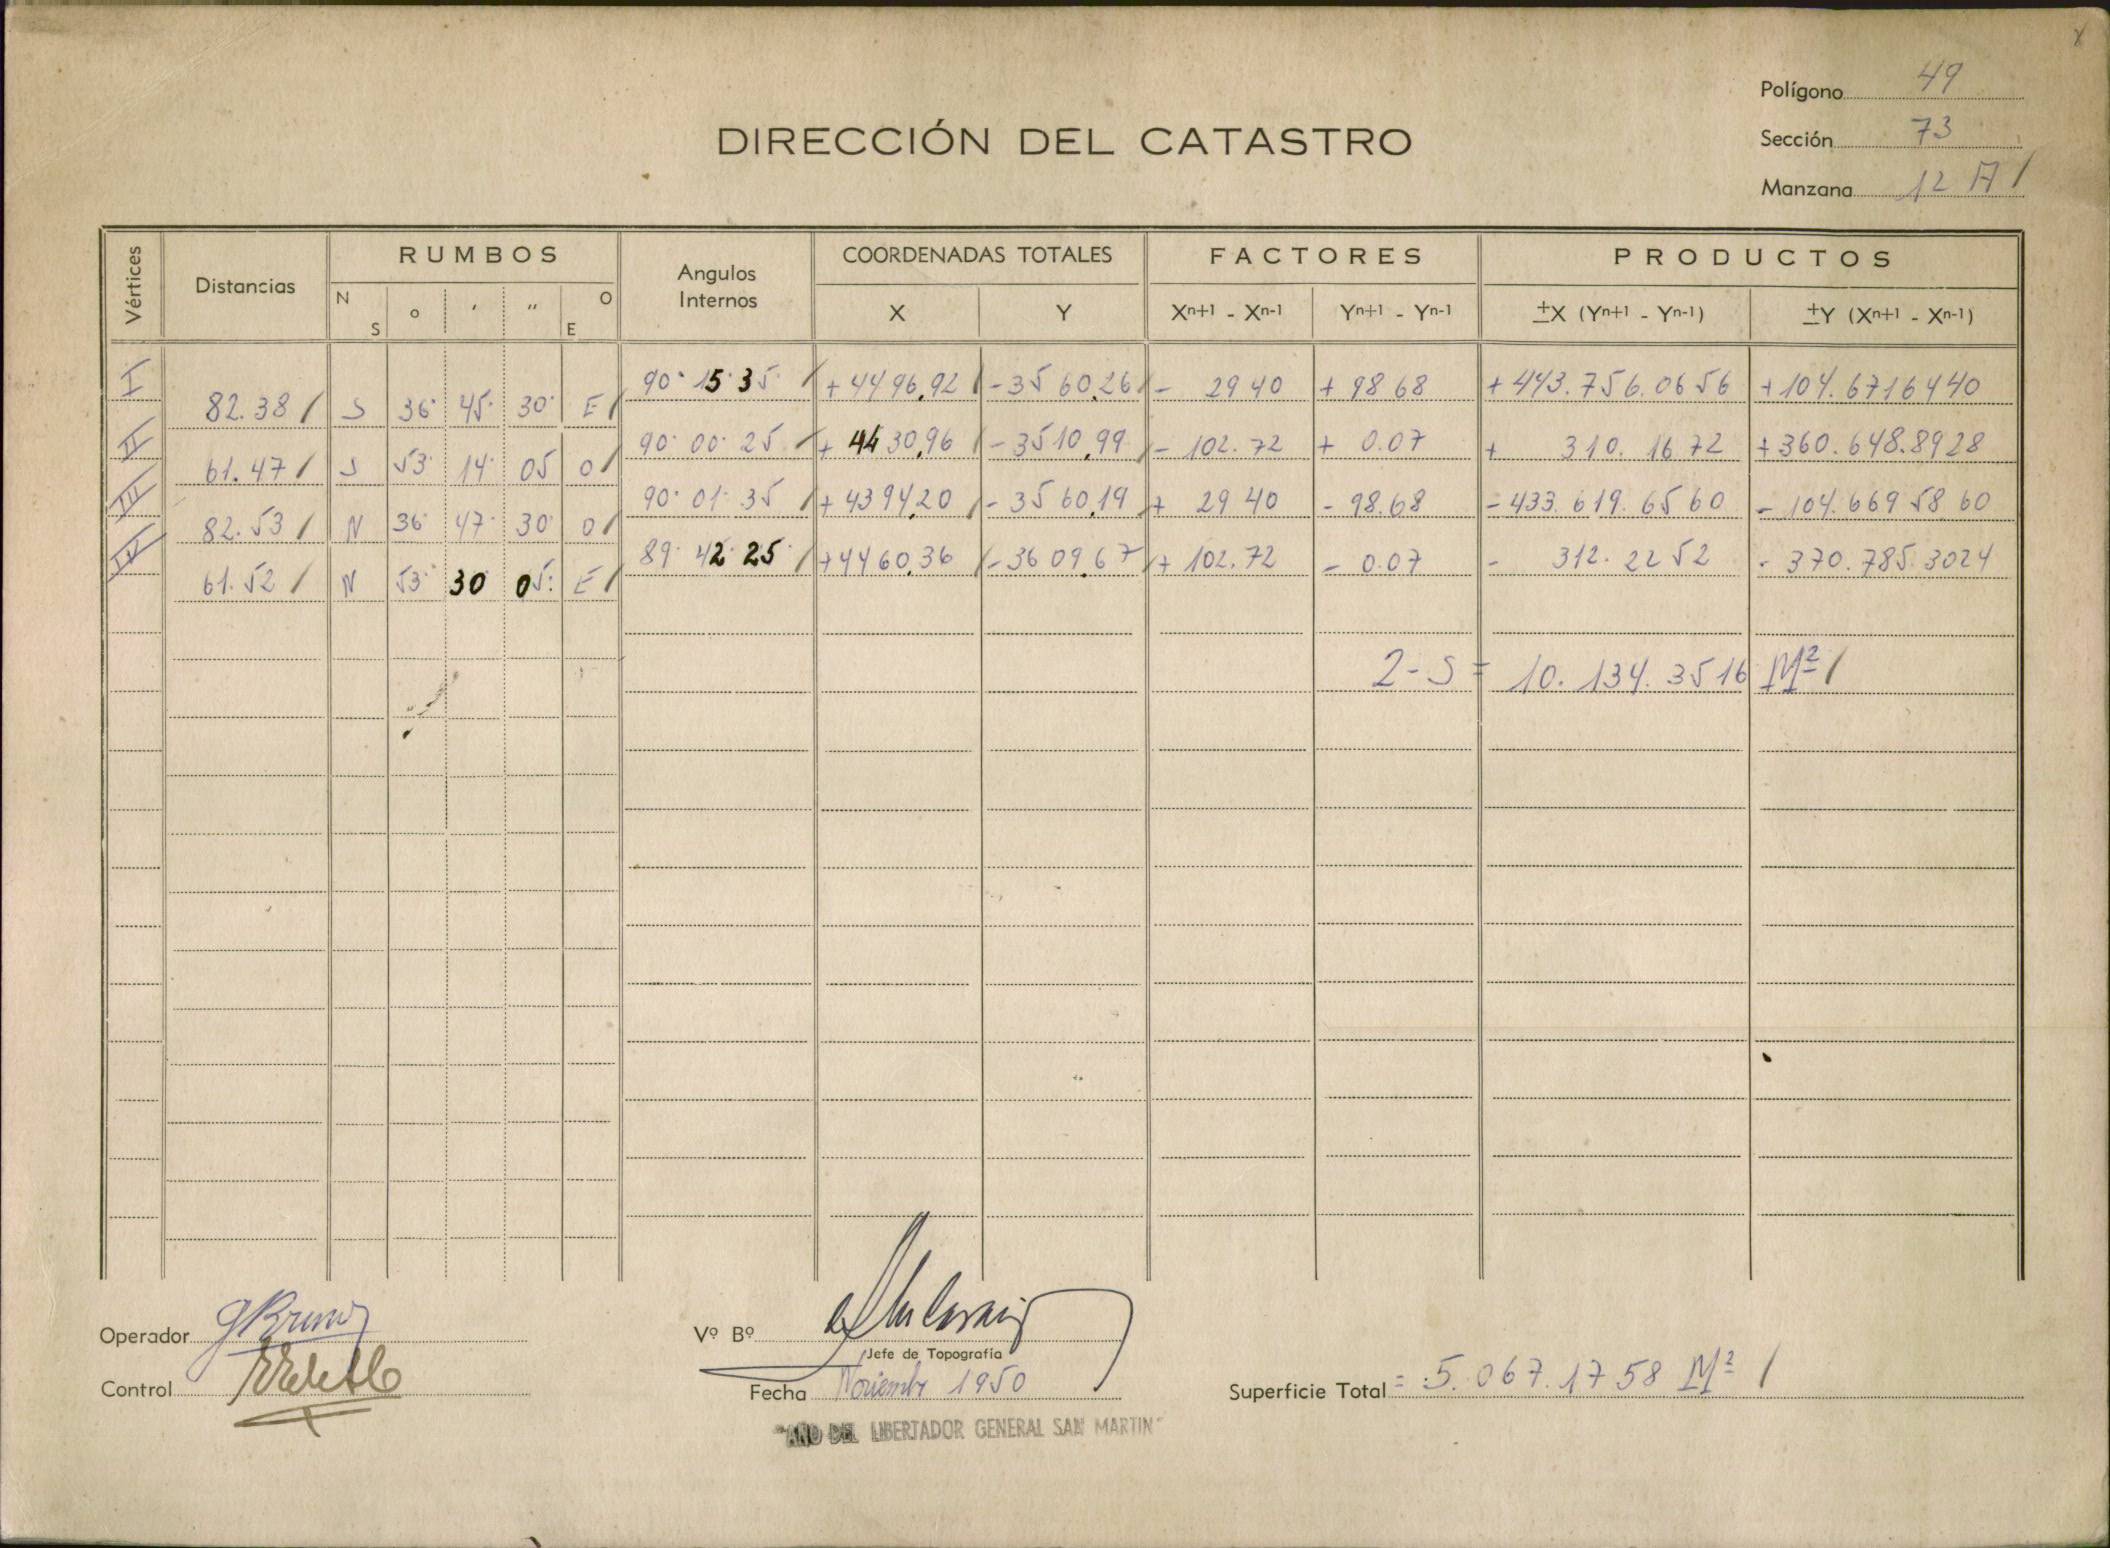 Polígono 49
DIRECCIÓN DEL CATASTRO
Sección 73
Manzana 12 A /
Vértices Distancias RUMBOS Angulos Internos COORDENADAS TOTALES FACTORES PRODUCTOS
N S ° ' " O E X Y Xn+1 - Xn-1 Yn+1 - Yn-1 ±X (Yn+1 - Yn-1) ±Y (Xn+1 - Xn-1)
I 90° 15' 35" / + 4496,92 / - 3560,26 / - 29 40 + 98 68 + 443.756.0656 + 104.6716440
82.38 / S 36° 45' 30" E /
II 90° 00' 25 / + 4430,96 / - 3510,99 / - 102.72 + 0.07 + 310.1672 + 360.648.8928
61.47 / S 53° 14' 05 O /
III 90° 01' 35 / + 4394,20 / - 3560,19 / + 29 40 - 98.68 - 433.619.6560 - 104.669 58 60
82.53 / N 36° 47' 30" O /
IV 89° 42' 25" / + 4460,36 / - 3609,67 / + 102.72 - 0.07 - 312.2252 - 370.785.3024
61.52 / N 53° 30' 05" E /
2-S = 10.134.3516 M² /
Operador
Vº Bº
Jefe de Topografía
Control
Fecha Noviembre 1950
Superficie Total = 5.067.1758 M² /
"AÑO DEL LIBERTADOR GENERAL SAN MARTIN"